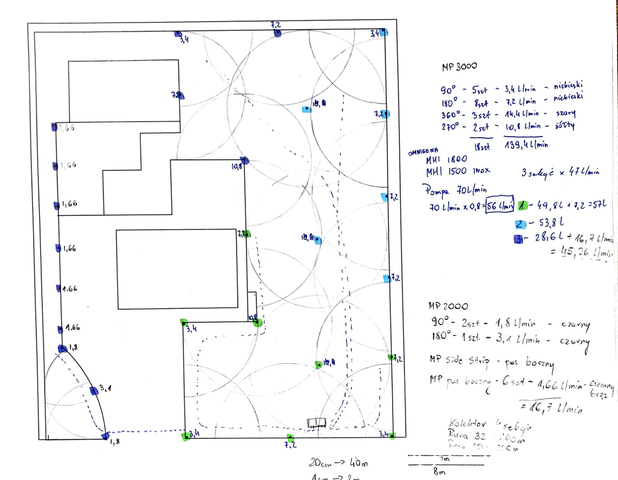 3,4
7,2
3,4
7,2
1,66
1,66
1,66
1,66
1,66
1,66
1,8
3,1
1,8
10,8
3,4
7,2
7,2
7,2
7,2
3,4
7,2
3,4
MP 3000
90° - 5szt - 3,4 l/min - niebieski
180° - 8szt - 7,2 l/min - niebieski
360° - 3szt - 14,4 l/min - szary
270° - 2szt - 10,8 l/min - żółty
18szt 139,4 l/min
OMNIGENA
MHI 1800
MHI 1500 INOX 3 sekcje x 47 l/min
Pompa 70 l/min
70 l/min x 0,8 = 56 l/min
1 - 49,8 L + 7,2 = 57 l
2 - 53,8 l
3 - 28,6 l + 16,7 l/min
= 45,36 l/min
MP 2000
90° - 2szt - 1,8 l/min - czarny
180° - 1szt - 3,1 l/min - czarny
MP side strip - pas boczny
MP pas boczny - 6szt - 1,66 l/min - ciemny brąz
= 16,7 l/min
Rura 32
20cm → 40m
1cm → 2m
8m